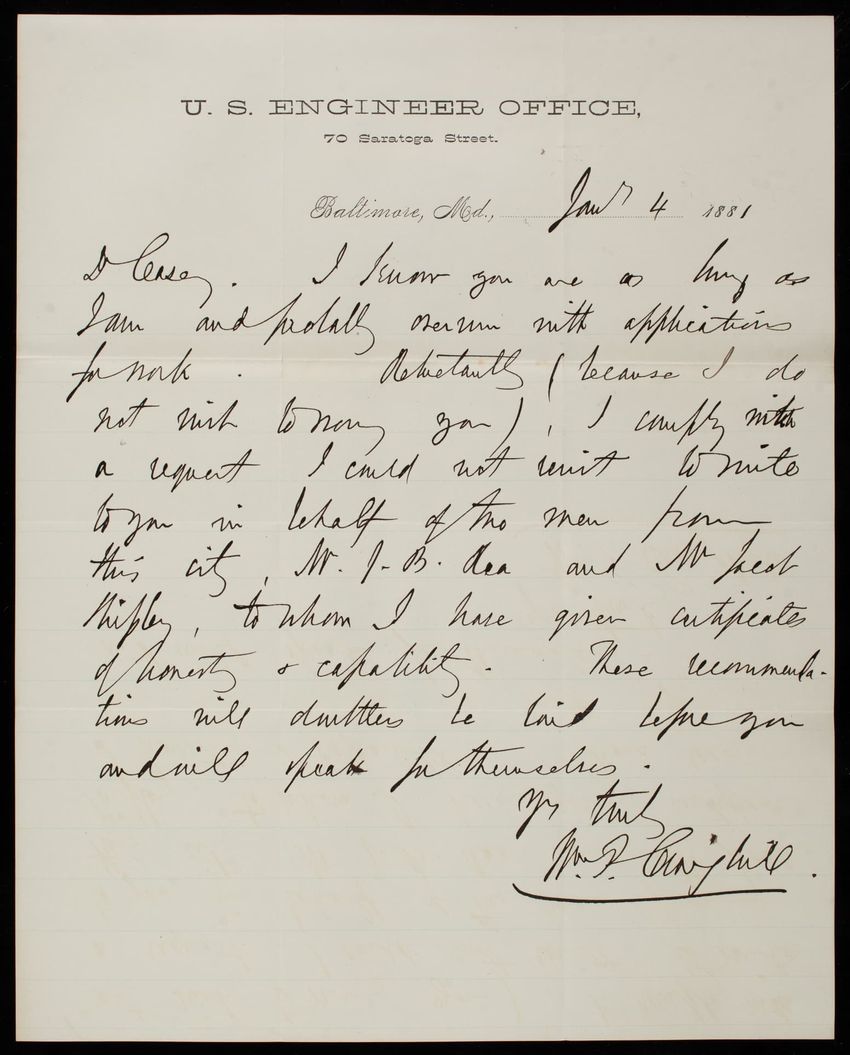 U. S. ENGINEER OFFICE,
70 Saratoga Street.
Baltimore, Md., Jany 4 1881
D Casey. I know you are as busy as
I am and probably overrun with applications
for work. Reluctantly (because I do
not wish to worry you), I comply with
a request I could not resist to write
to you in behalf of two men from
this city, Mr. J. B. Rea and Mr Jacob
Shipley, to whom I have given certificates
of honesty & capability. These recommenda-
tions will doubtless be laid before you
and will speak for themselves.
Yrs truly
Wm. P. Craighill.